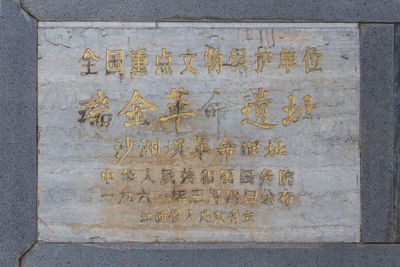 全国重点文物保护单位
瑞金革命遗址
沙洲坝革命旧址
中华人民共和国国务院
一九六一年三月四日公布
江西省人民政府立